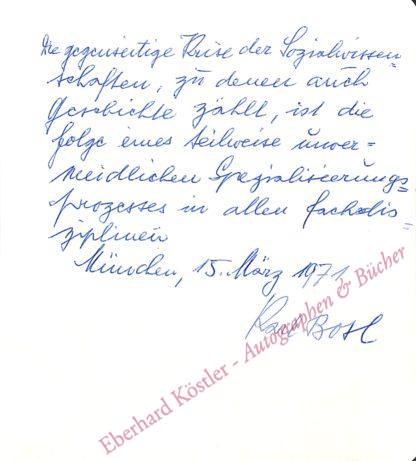 Die gegenseitige Krise der Sozialwissen=
schaften, zu denen auch
Geschichte zählt, ist die
Folge eines teilweise unver=
meidlichen Spezialisierungs=
prozesses in allen Fachdis=
ziplinen
München, 15. März 1971
Karl Bosl
Eberhard Köstler - Autographen & Bücher